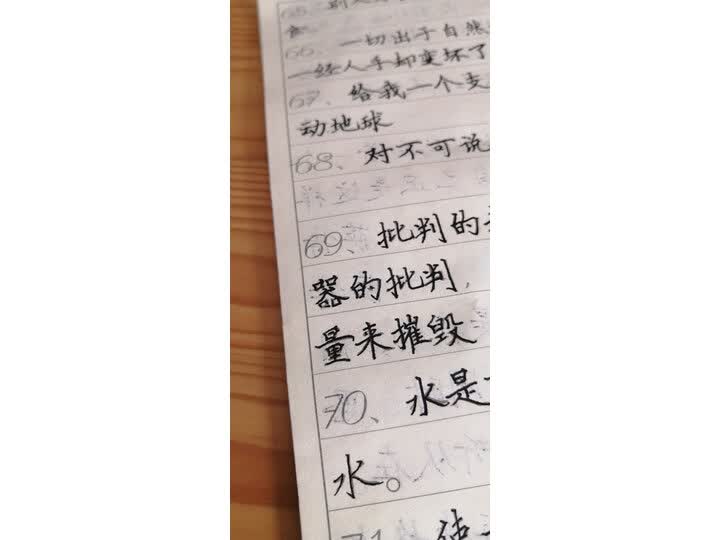 65、别
66、一切出于自然
一经人手却变坏了
67、给我一个支
动地球
68、对不可说
69、批判的
器的批判,
量来摧毁
70、水是
水。